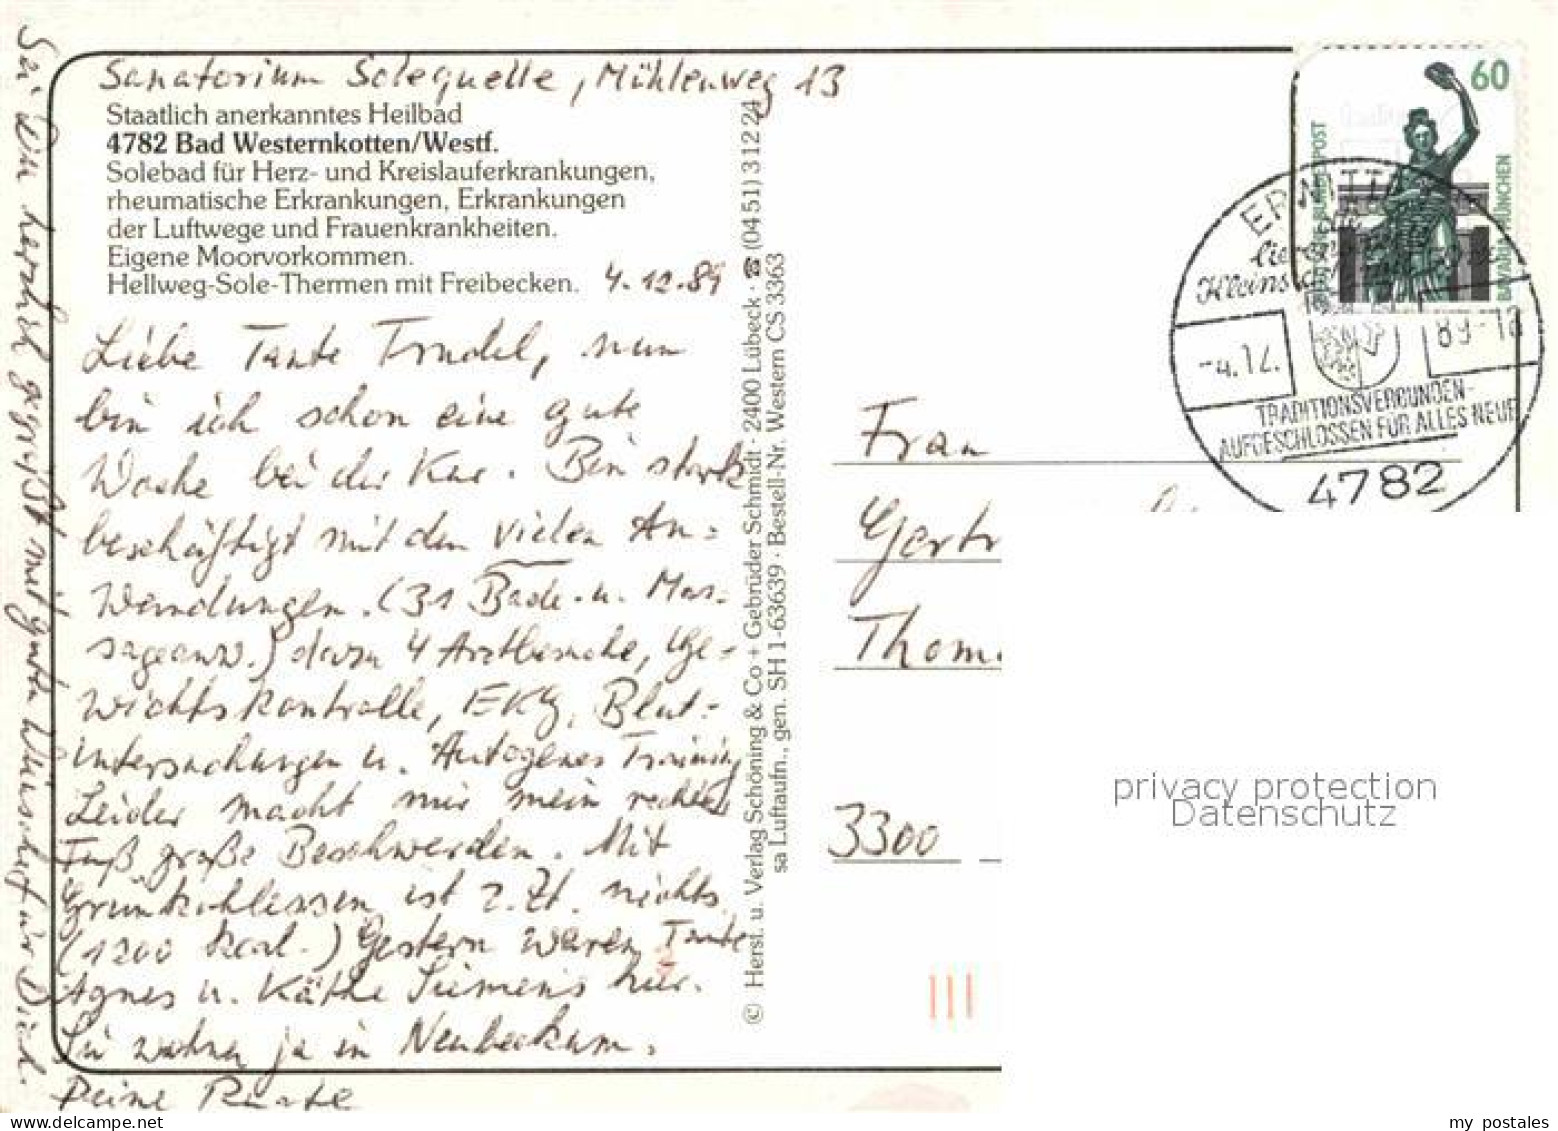 Sanatorium Solequelle, Mühlenweg 13
Staatlich anerkanntes Heilbad
4782 Bad Westernkotten/Westf.
Solebad für Herz- und Kreislauferkrankungen,
rheumatische Erkrankungen, Erkrankungen
der Luftwege und Frauenkrankheiten.
Eigene Moorvorkommen.
Hellweg-Sole-Thermen mit Freibecken. 4.12.89
Liebe Tante Trudel, nun
bin ich schon eine gute
Woche bei der Kur. Bin stark
beschäftigt mit den vielen An=
wendungen. (31 Bade- u. Mas-
sageanw.) dazu 4 Arztbesuche, Ge=
wichtskontrolle, EKG, Blut=
untersuchungen u. Autogenes Training
Leider macht mir mein rechter
Fuß große Beschwerden. Mit
Grünkohlessen ist z. Zt. nichts.
(1200 kcal.) Gestern waren Tante
Agnes u. Käthe Siemens hier.
Sie wohnen ja in Neubeckum.
Deine Renate
Sei Du herzlich gegrüßt mit guten Wünschen für Dich.
© Herst. u. Verlag Schöning & Co + Gebrüder Schmidt · 2400 Lübeck · ☎ (0451) 3 12 24
sa Luftaufn., gen. SH 1-63639 · Bestell-Nr. Western CS 3363
60
DEUTSCHE BUNDESPOST
BAVARIA MÜNCHEN
ERWITTE
-4.12. 89-18
TRADITIONSVERBUNDEN-
AUFGESCHLOSSEN FÜR ALLES NEUE
4782
Frau
Gertr
Thom
3300
privacy protection
Datenschutz
my postales